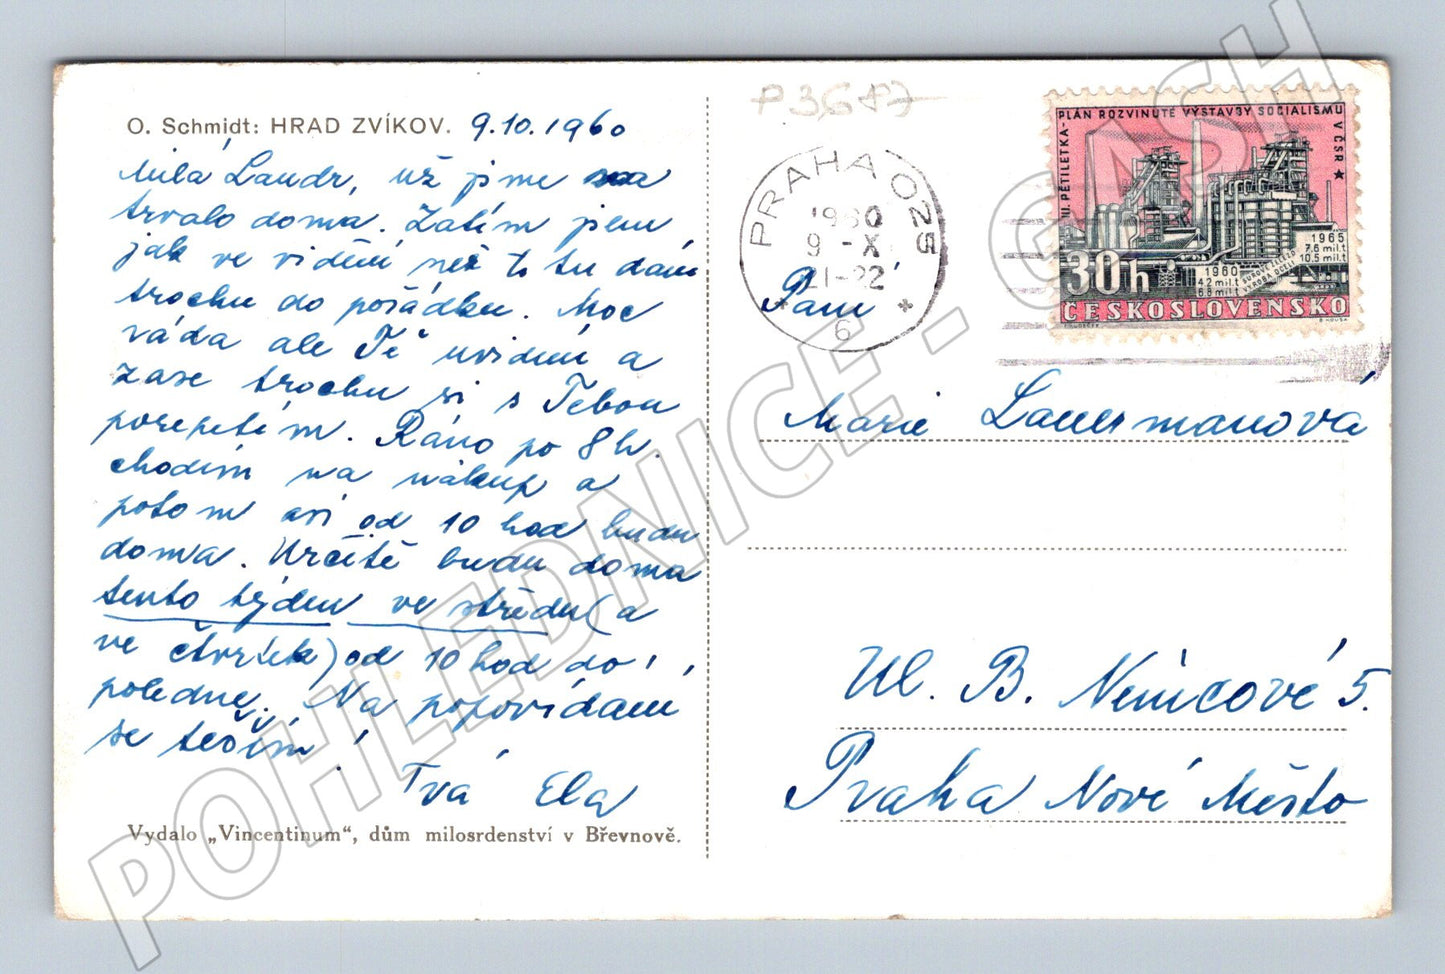 O. Schmidt: HRAD ZVÍKOV. 9.10.1960
Milá Laudr, už jsme na
trvalo doma. Zatím jsem
jak ve vidění než to tu dám
trochu do pořádku. Moc
ráda ale Tě uvidím a
zase trochu si s Tebou
porepetím. Ráno po 8 h.
chodím na nákup a
potom asi od 10 hod budu
doma. Určitě budu doma
tento týden ve středu (a
ve čtvrtek) od 10 hod do
poledne. Na popovídání
se těším!
Tvá Ela
Vydalo „Vincentinum“, dům milosrdenství v Břevnově.
P3687
PRAHA 025
1960
9 -X
21-22
* 6 *
III. PĚTILETKA - PLÁN ROZVINUTÉ VÝSTAVBY SOCIALISMU V ČSR ★
30h
1960
4.2 mil.t
6.8 mil.t
SUROVÉ ŽELEZO
VÝROBA OCELI
1965
7.6 mil.t
10.5 mil.t
ČESKOSLOVENSKO
Paní
Marie Lauermanová
Ul. B. Němcové 5.
Praha Nové Město
POHLEDNICE - CASH